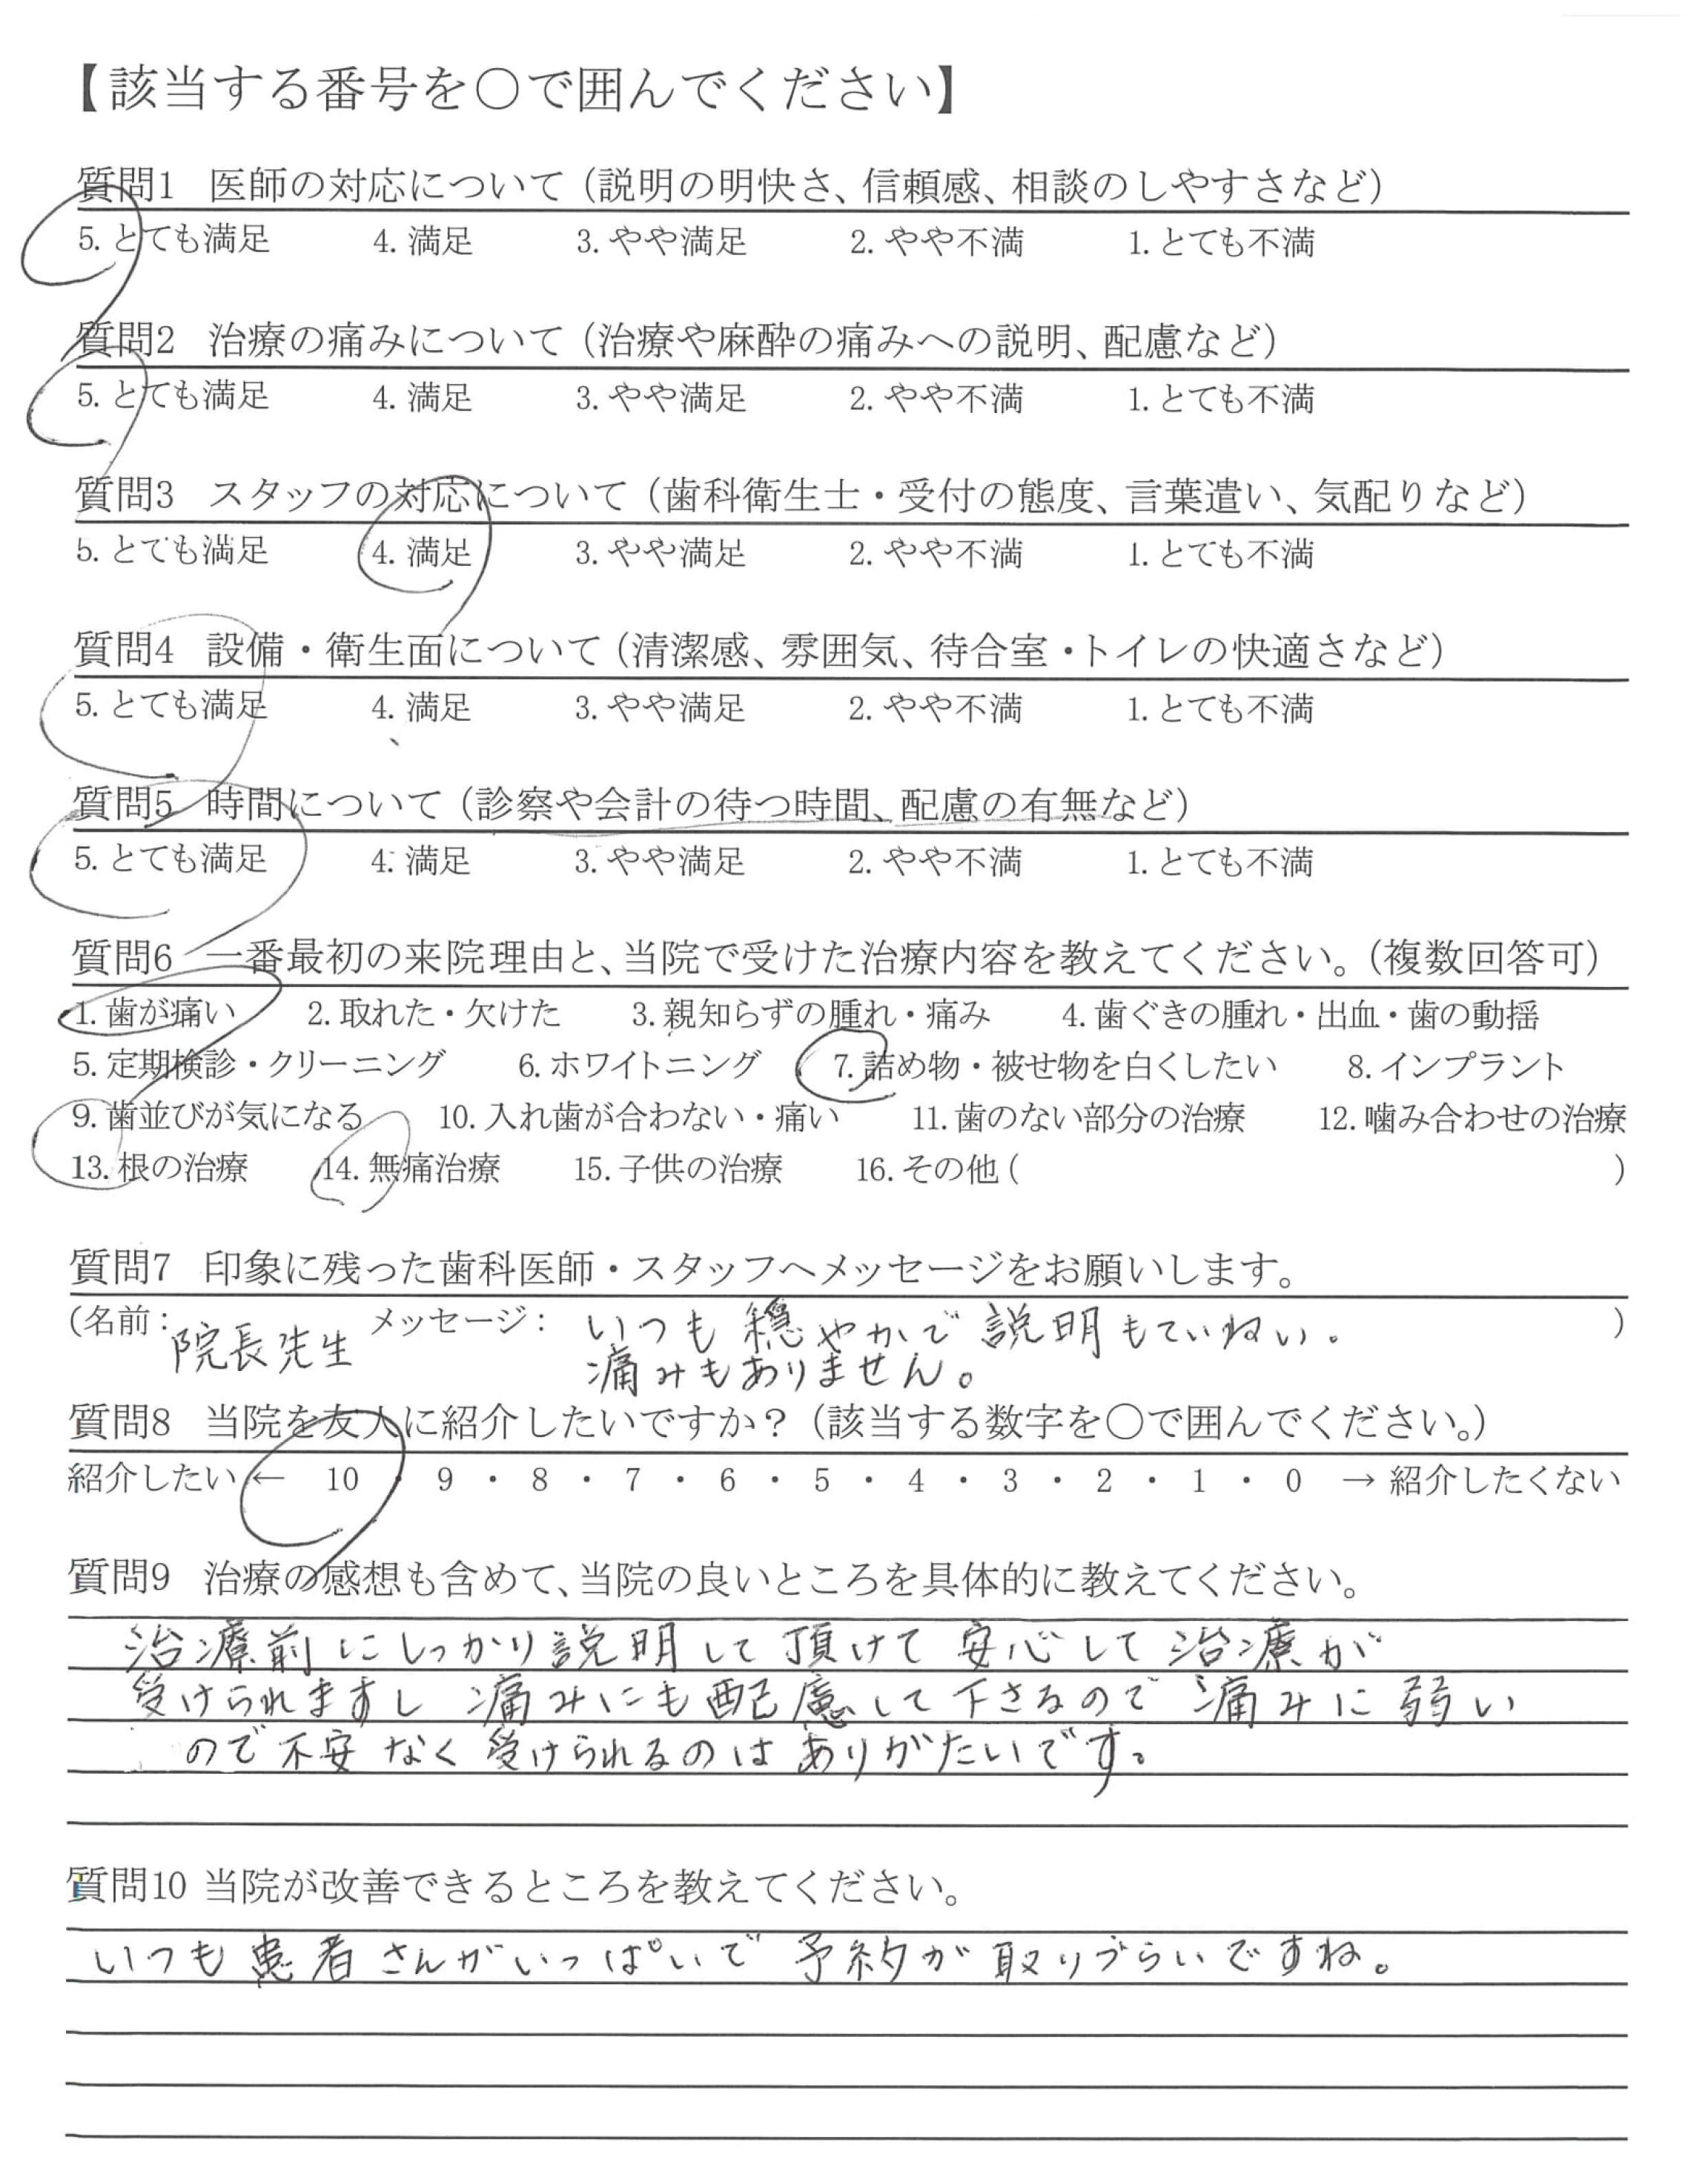 【該当する番号を〇で囲んでください】
質問1 医師の対応について（説明の明快さ、信頼感、相談のしやすさなど）
5. とても満足 4. 満足 3. やや満足 2. やや不満 1. とても不満
質問2 治療の痛みについて（治療や麻酔の痛みへの説明、配慮など）
5. とても満足 4. 満足 3. やや満足 2. やや不満 1. とても不満
質問3 スタッフの対応について（歯科衛生士・受付の態度、言葉遣い、気配りなど）
5. とても満足 4. 満足 3. やや満足 2. やや不満 1. とても不満
質問4 設備・衛生面について（清潔感、雰囲気、待合室・トイレの快適さなど）
5. とても満足 4. 満足 3. やや満足 2. やや不満 1. とても不満
質問5 時間について（診察や会計の待つ時間、配慮の有無など）
5. とても満足 4. 満足 3. やや満足 2. やや不満 1. とても不満
質問6 一番最初の来院理由と、当院で受けた治療内容を教えてください。（複数回答可）
1. 歯が痛い 2. 取れた・欠けた 3. 親知らずの腫れ・痛み 4. 歯ぐきの腫れ・出血・歯の動揺
5. 定期検診・クリーニング 6. ホワイトニング 7. 詰め物・被せ物を白くしたい 8. インプラント
9. 歯並びが気になる 10. 入れ歯が合わない・痛い 11. 歯のない部分の治療 12. 噛み合わせの治療
13. 根の治療 14. 無痛治療 15. 子供の治療 16. その他（ ）
質問7 印象に残った歯科医師・スタッフへメッセージをお願いします。
（名前： 院長先生 メッセージ： いつも 穏やかで 説明もていねい。 ）
痛みもありません。
質問8 当院を友人に紹介したいですか？（該当する数字を〇で囲んでください。）
紹介したい ← 10 ・ 9 ・ 8 ・ 7 ・ 6 ・ 5 ・ 4 ・ 3 ・ 2 ・ 1 ・ 0 → 紹介したくない
質問9 治療の感想も含めて、当院の良いところを具体的に教えてください。
治療前にしっかり説明して頂けて 安心して 治療が
受けられますし 痛みにも配慮して下さるので 痛みに弱い
ので不安なく受けられるのは ありがたいです。
質問10 当院が改善できるところを教えてください。
いつも患者さんがいっぱいで 予約が 取りづらいですね。